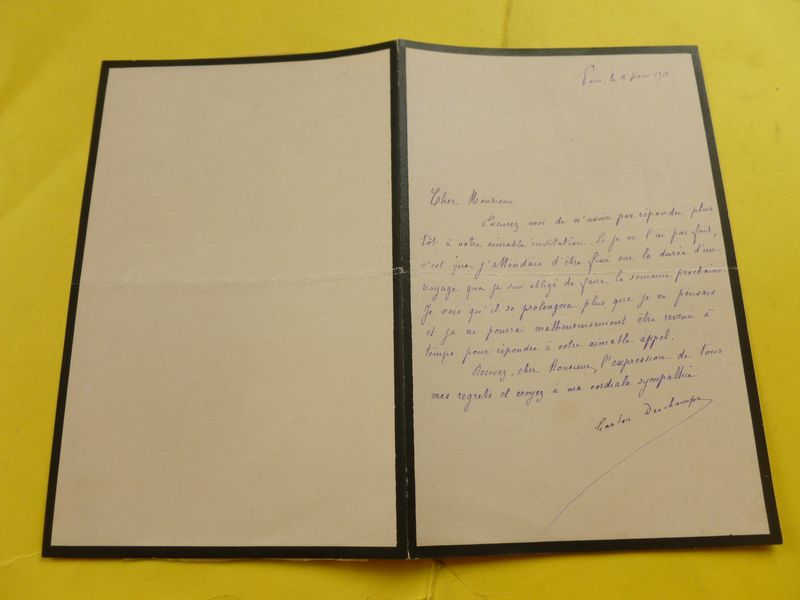 Paris, le
Cher Monsieur
Excusez moi de n'avoir pas répondu plus
tôt à votre aimable invitation. Si je ne l'ai pas fait,
c'est que j'attendais d'être fixé sur la durée d'un
voyage que je suis obligé de faire la semaine prochaine.
Je vois qu'il se prolongera plus que je ne pensais
et je ne pourrai malheureusement être revenu à
temps pour répondre à votre aimable appel.
Recevez, cher Monsieur, l'expression de tous
mes regrets et croyez à ma cordiale sympathie
Gaston Deschamps